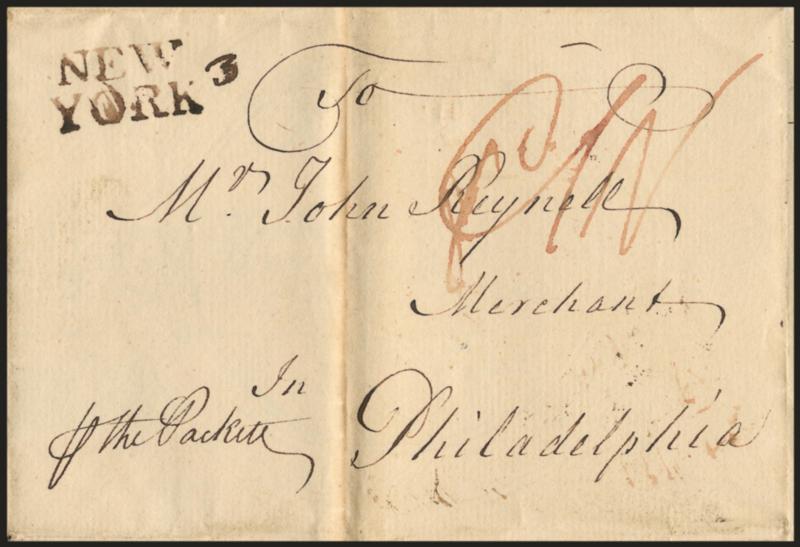 NEW
YORK 3
To
Mr. John Reynell
Merchant
In
Philadelphia
the Packett